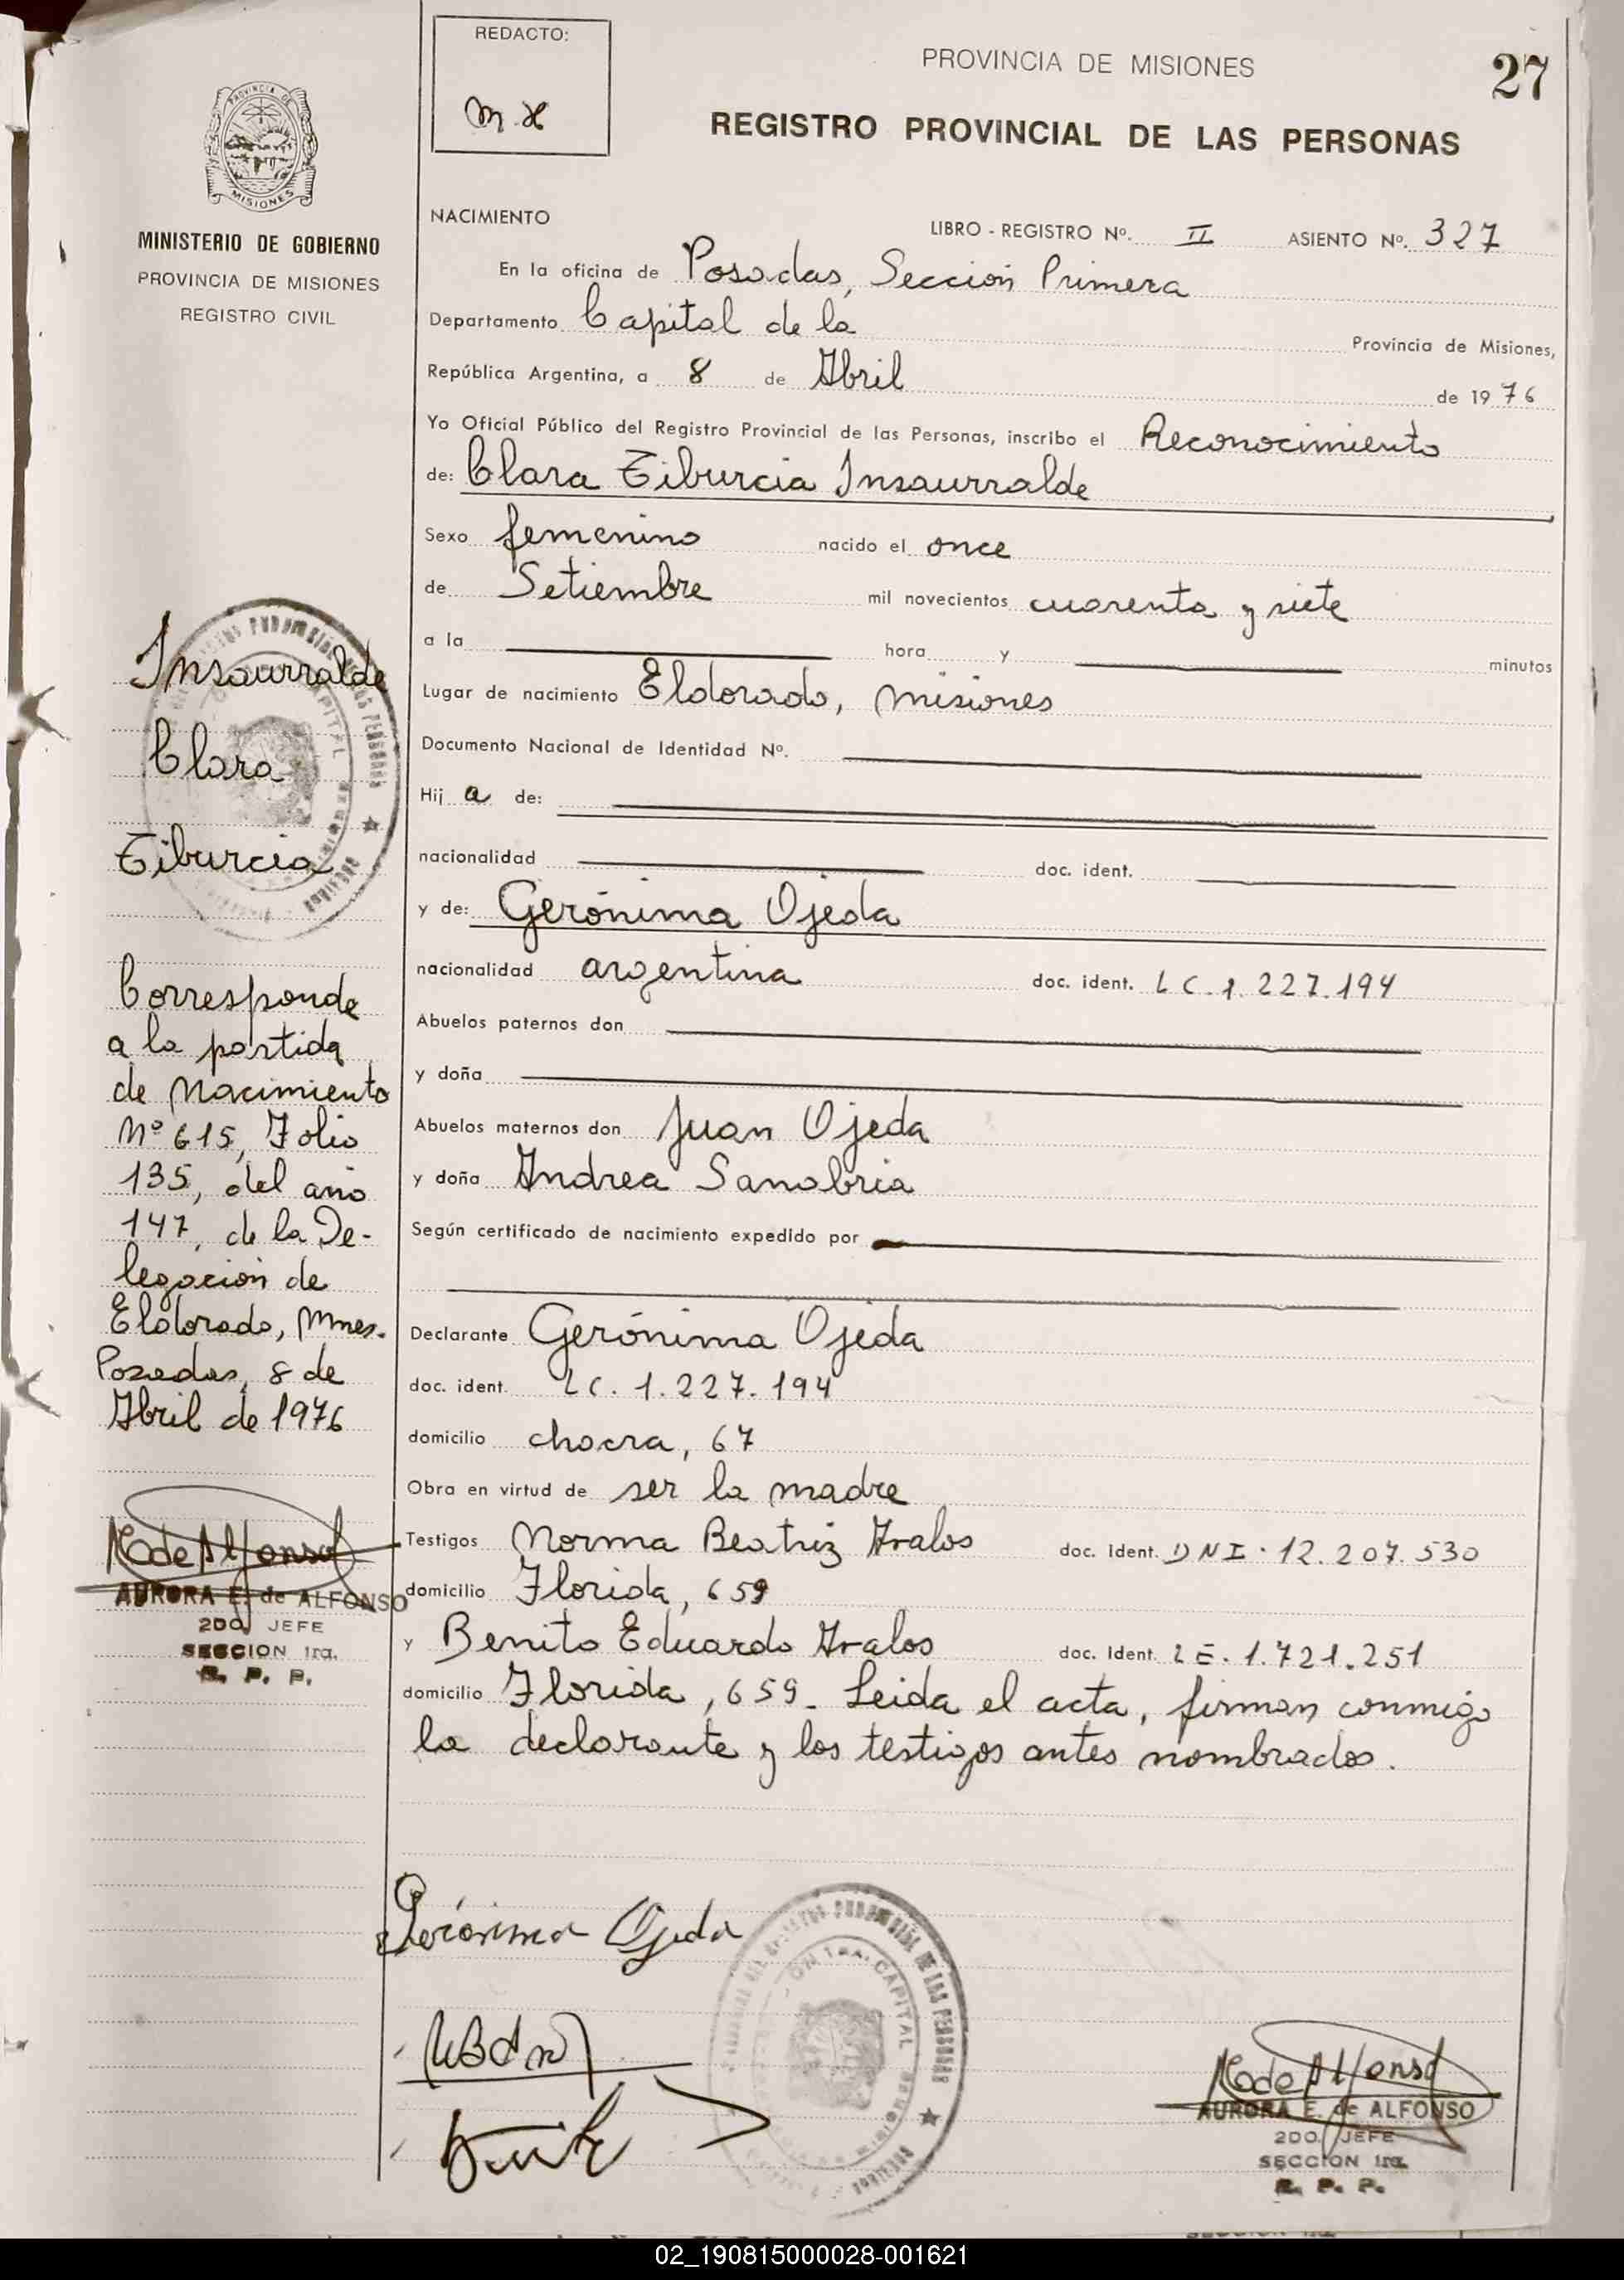 REDACTO:
M. H
PROVINCIA DE MISIONES
27
REGISTRO PROVINCIAL DE LAS PERSONAS
PROVINCIA DE
MISIONES
MINISTERIO DE GOBIERNO
PROVINCIA DE MISIONES
REGISTRO CIVIL
NACIMIENTO
LIBRO - REGISTRO Nº. II ASIENTO Nº. 327
En la oficina de Posadas, Sección Primera
Departamento Capital de la Provincia de Misiones,
República Argentina, a 8 de Abril de 1976
Yo Oficial Público del Registro Provincial de las Personas, inscribo el Reconocimiento
de: Clara Tiburcia Insaurralde
Sexo femenino nacido el once
de Setiembre mil novecientos cuarenta y siete
a la hora y minutos
Lugar de nacimiento Eldorado, Misiones
Documento Nacional de Identidad Nº.
Hij a de:
nacionalidad doc. ident.
y de: Gerónima Ojeda
nacionalidad argentina doc. ident. LC. 1.227.194
Abuelos paternos don
y doña
Abuelos maternos don Juan Ojeda
y doña Andrea Sanabria
Según certificado de nacimiento expedido por
Declarante Gerónima Ojeda
doc. ident. LC. 1.227.194
domicilio chacra, 67
Obra en virtud de ser la madre
Testigos Norma Beatriz Avalos doc. Ident. DNI. 12.207.530
domicilio Florida, 659
y Benito Eduardo Avalos doc. Ident. LE. 1.721.251
domicilio Florida, 659. Leida el acta, firman conmigo
la declarante y los testigos antes nombrados.
Insaurralde
Clara
Tiburcia
Corresponde
a la partida
de Nacimiento
Nº 615, Folio
135, del año
147, de la De-
legación de
Eldorado, Mnes.
Posadas, 8 de
Abril de 1976
AURORA E. de ALFONSO
2DO. JEFE
SECCION 1ra.
R. P. P.
Gerónima Ojeda
CAPITAL
DE LAS PERSONAS
AURORA E. de ALFONSO
2DO. JEFE
SECCION 1ra.
R. P. P.
02_190815000028-001621